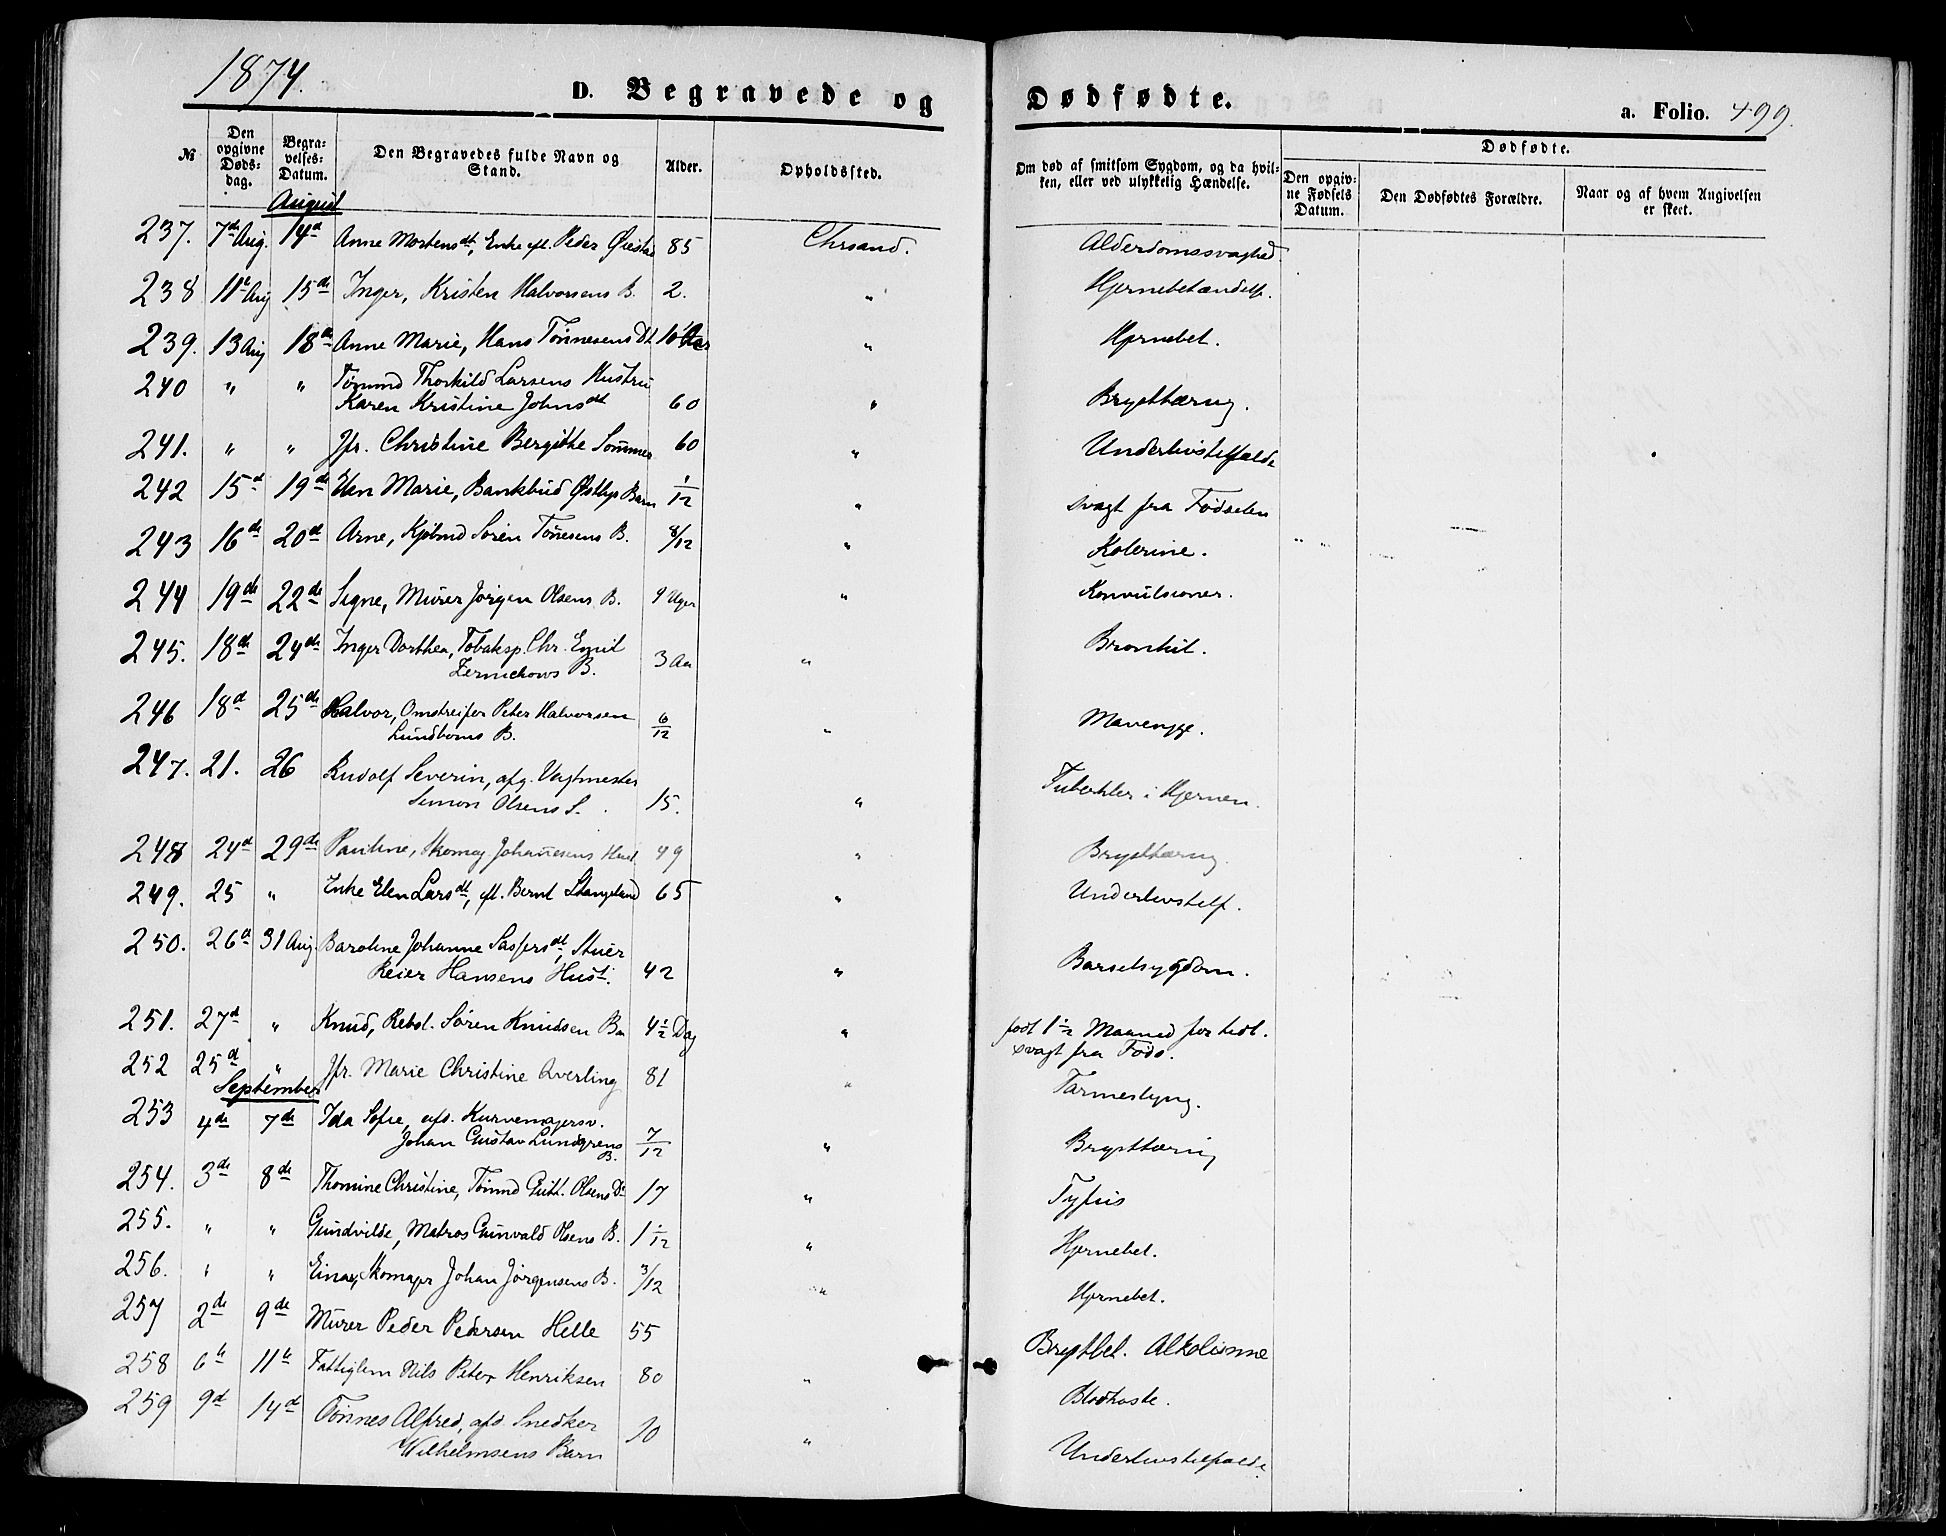 1874.
D. Begravede og Dødfødte.
a. Folio. 499.
№
Den opgivne Døds-dag.
Begra-velses-Datum.
Den Begravedes fulde Navn og Stand.
Alder.
Opholdssted.
Om død af smitsom Sygdom, og da hvil-ken, eller ved ulykkelig Hændelse.
Dødfødte.
Den opgiv-ne Fødsels Datum.
Den Dødfødtes Forældre.
Naar og af hvem Angivelsen er skeet.
August
237. 7de Aug. 14d Anne Mortensdt, Enke eft. Peder 85 Chrsand. Alderdomssvaghed
238 11te Aug 15de Inger, Kristen Halvorsens B. 2. " Hjernebetændels.
239. 13 Aug 18de Anne Marie, Hans Tønnesens Dt " Hjernebet.
240 " " Tømmd Thorkild Larsens Hustru
Karen Kristine Johnsdt 60 " Brysttæring.
241. " " Jfr. Christine Bergitte Sommer 60 " Underlivstilfælde
242 15d 19de Elen Marie, Bankbud Østbys Barn 1/12 " svagt fra Fødselen
243 16de 20d Arne, Kjøbmd Sören Tönesens B. 8/12 " Kolerine.
244 19de 22de Signe, Murer Jørgen Olsens B. 9 Uger " Konvulsioner.
245. 18de 24de Inger Dorthea, Tobaksp. Chr. Emil
Zernichows B. 3 Aa " Bronkit.
246 18d 25de Halvor, Omstreifer Peter Halvorsen
Lundboms B. 6/12 "
247. 21. 26 Rudolf Severin, afg. Vagtmester
Simon Olsens S. 15. " Tuberkler i Hjernen.
248 24d 29de Pauline, Skomag Johanesens Hust 49 " Brysttæring.
249. 25 " Enke Elen Larsdt, eft. Bernt Stangeland 65 " Underlivstilf.
250. 26d 31 Aug. Baroline Johanne, Stuer
Reier Hansens Hust. 42 " Barselsygdom.
251. 27d " Knud, Rebsl. Sören Knudsen Ba 4½ Dag " født 1½ Maaned for tidl.
svagt fra Føds.
252 25d " Jfr. Marie Christine Qverling 81 " Tarmeslyng.
September
253 4de 7de Ida Sofie, afd. Kurvemagersv.
Johan Gustav Lundgrens
B. 7/12 " Brysttæring
254. 3de 8de Thomine Christine, Tømmd Gutt. Olsens D. 17 " Tyfus
255. " " Gundvilde, Matros Gunvald Olsens B. 1 1/12 " Hjernebet.
256. " " Einar, Skomager Johan Jörgensens B. 3/12 " Hjernebet.
257 2de 9de Murer Peder Pedersen Helle 55 Brystbet. Alkolisme
258 6te 11te Fattiglem Nils Peter Henriksen 80 " Blodhoste.
259 9d 14d Tönnes Alfred, afd. Snedker
Wilhelmsens Barn 10 " Underlivstilfælde